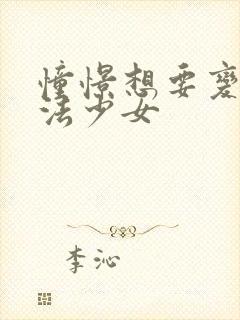 憧憬想要变
法少女
李沁